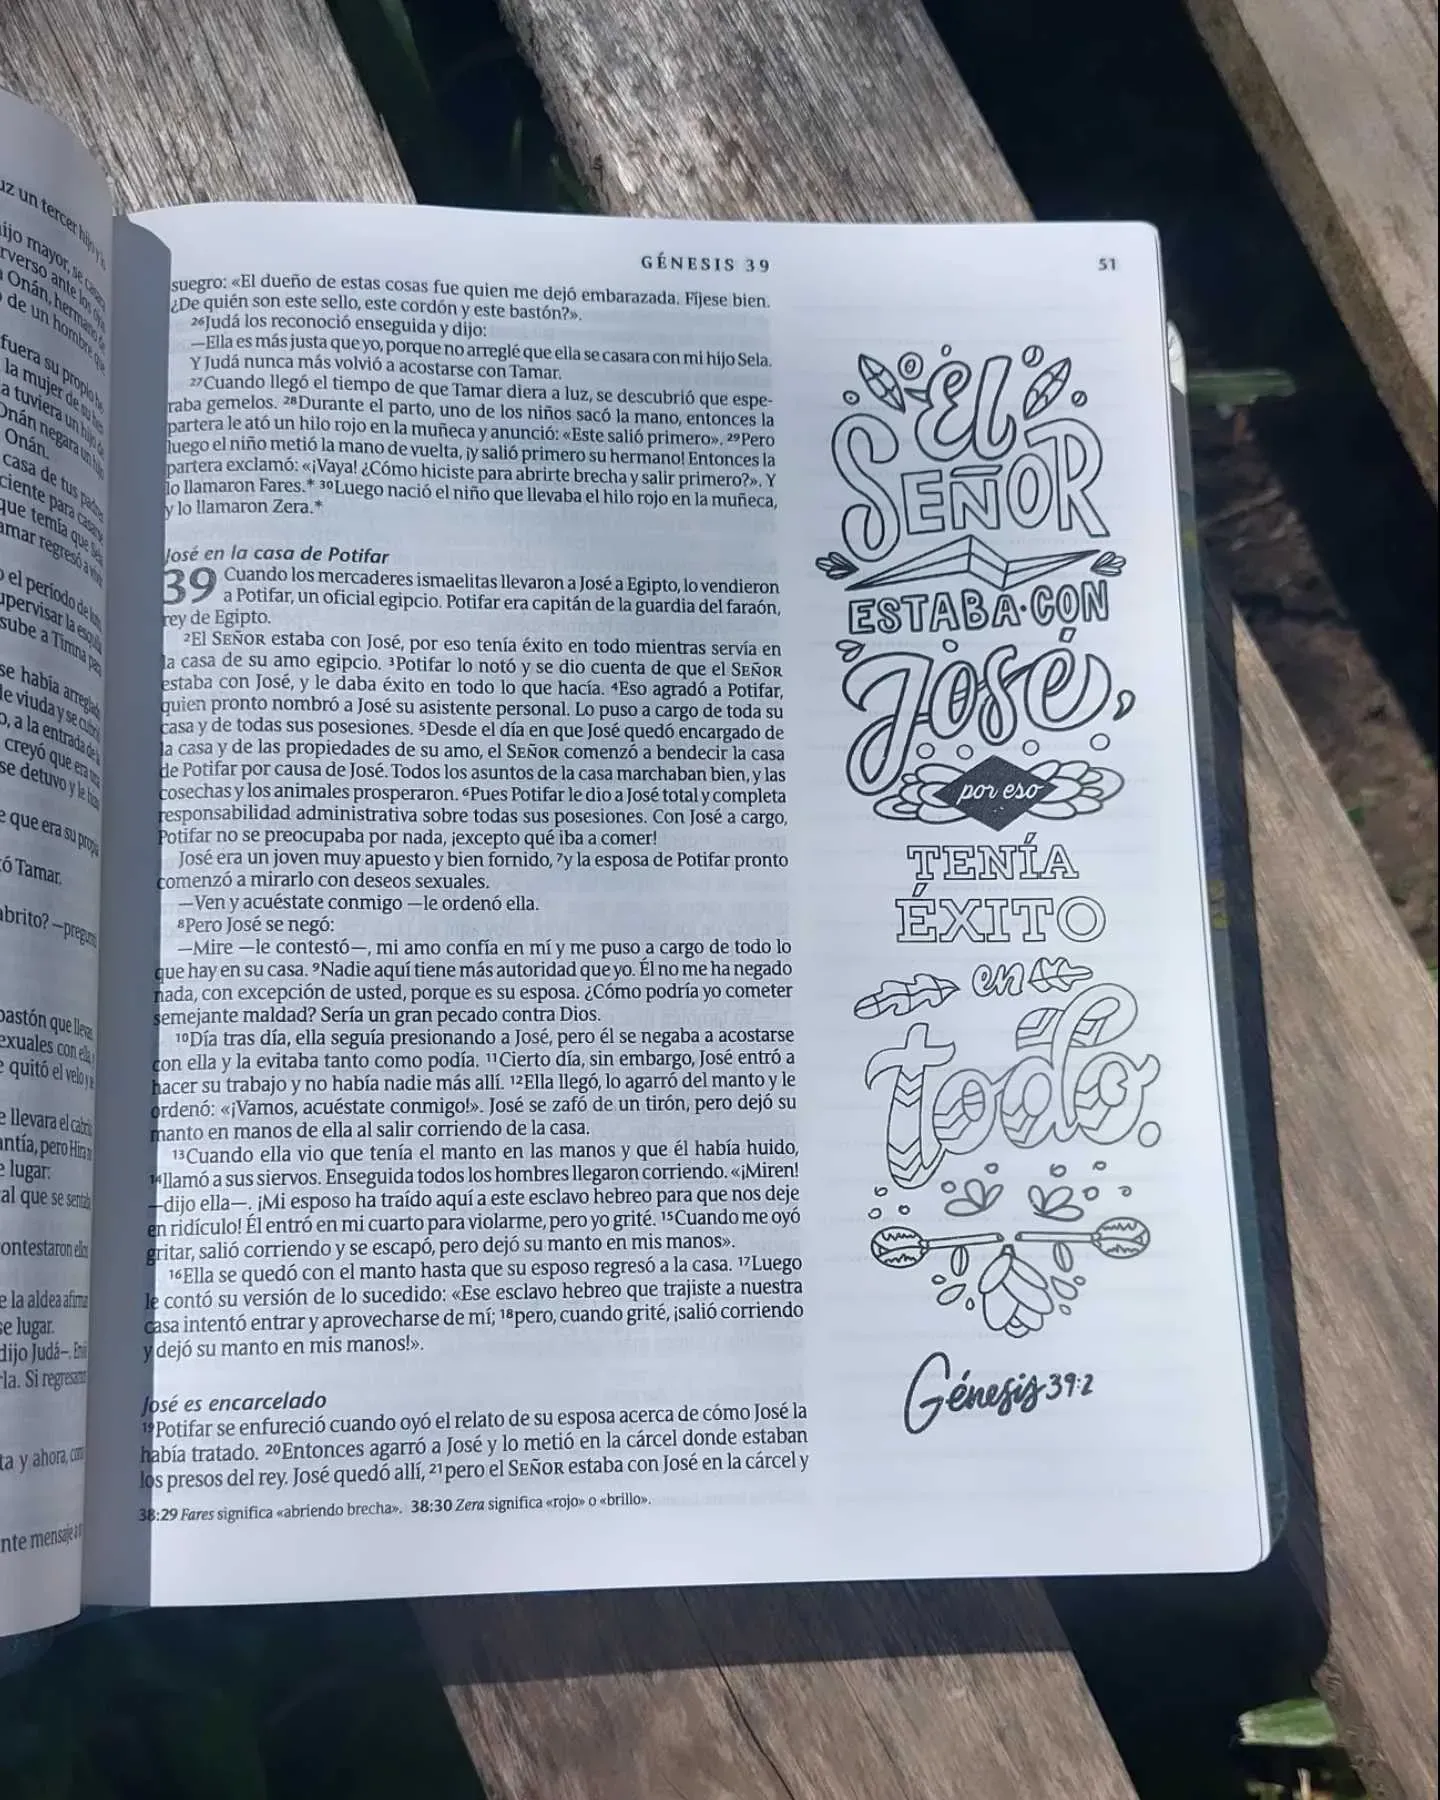 GÉNESIS 39
51
suegro: «El dueño de estas cosas fue quien me dejó embarazada. Fíjese bien.
¿De quién son este sello, este cordón y este bastón?».
26Judá los reconoció enseguida y dijo:
—Ella es más justa que yo, porque no arreglé que ella se casara con mi hijo Sela.
Y Judá nunca más volvió a acostarse con Tamar.
27Cuando llegó el tiempo de que Tamar diera a luz, se descubrió que espe-
raba gemelos. 28Durante el parto, uno de los niños sacó la mano, entonces la
partera le ató un hilo rojo en la muñeca y anunció: «Este salió primero». 29Pero
luego el niño metió la mano de vuelta, ¡y salió primero su hermano! Entonces la
partera exclamó: «¡Vaya! ¿Cómo hiciste para abrirte brecha y salir primero?». Y
lo llamaron Fares.* 30Luego nació el niño que llevaba el hilo rojo en la muñeca,
y lo llamaron Zera.*
José en la casa de Potifar
39 Cuando los mercaderes ismaelitas llevaron a José a Egipto, lo vendieron
a Potifar, un oficial egipcio. Potifar era capitán de la guardia del faraón,
rey de Egipto.
2El SEÑOR estaba con José, por eso tenía éxito en todo mientras servía en
la casa de su amo egipcio. 3Potifar lo notó y se dio cuenta de que el SEÑOR
estaba con José, y le daba éxito en todo lo que hacía. 4Eso agradó a Potifar,
quien pronto nombró a José su asistente personal. Lo puso a cargo de toda su
casa y de todas sus posesiones. 5Desde el día en que José quedó encargado de
la casa y de las propiedades de su amo, el SEÑOR comenzó a bendecir la casa
de Potifar por causa de José. Todos los asuntos de la casa marchaban bien, y las
cosechas y los animales prosperaron. 6Pues Potifar le dio a José total y completa
responsabilidad administrativa sobre todas sus posesiones. Con José a cargo,
Potifar no se preocupaba por nada, ¡excepto qué iba a comer!
José era un joven muy apuesto y bien fornido, 7y la esposa de Potifar pronto
comenzó a mirarlo con deseos sexuales.
—Ven y acuéstate conmigo —le ordenó ella.
8Pero José se negó:
—Mire —le contestó—, mi amo confía en mí y me puso a cargo de todo lo
que hay en su casa. 9Nadie aquí tiene más autoridad que yo. Él no me ha negado
nada, con excepción de usted, porque es su esposa. ¿Cómo podría yo cometer
semejante maldad? Sería un gran pecado contra Dios.
10Día tras día, ella seguía presionando a José, pero él se negaba a acostarse
con ella y la evitaba tanto como podía. 11Cierto día, sin embargo, José entró a
hacer su trabajo y no había nadie más allí. 12Ella llegó, lo agarró del manto y le
ordenó: «¡Vamos, acuéstate conmigo!». José se zafó de un tirón, pero dejó su
manto en manos de ella al salir corriendo de la casa.
13Cuando ella vio que tenía el manto en las manos y que él había huido,
14llamó a sus siervos. Enseguida todos los hombres llegaron corriendo. «¡Miren!
—dijo ella—. ¡Mi esposo ha traído aquí a este esclavo hebreo para que nos deje
en ridículo! Él entró en mi cuarto para violarme, pero yo grité. 15Cuando me oyó
gritar, salió corriendo y se escapó, pero dejó su manto en mis manos».
16Ella se quedó con el manto hasta que su esposo regresó a la casa. 17Luego
le contó su versión de lo sucedido: «Ese esclavo hebreo que trajiste a nuestra
casa intentó entrar y aprovecharse de mí; 18pero, cuando grité, ¡salió corriendo
y dejó su manto en mis manos!».
José es encarcelado
19Potifar se enfureció cuando oyó el relato de su esposa acerca de cómo José la
había tratado. 20Entonces agarró a José y lo metió en la cárcel donde estaban
los presos del rey. José quedó allí, 21pero el SEÑOR estaba con José en la cárcel y
38:29 Fares significa «abriendo brecha». 38:30 Zera significa «rojo» o «brillo».
El
SEÑOR
ESTABA·CON
José,
por eso
TENÍA
ÉXITO
en
todo.
Génesis 39:2